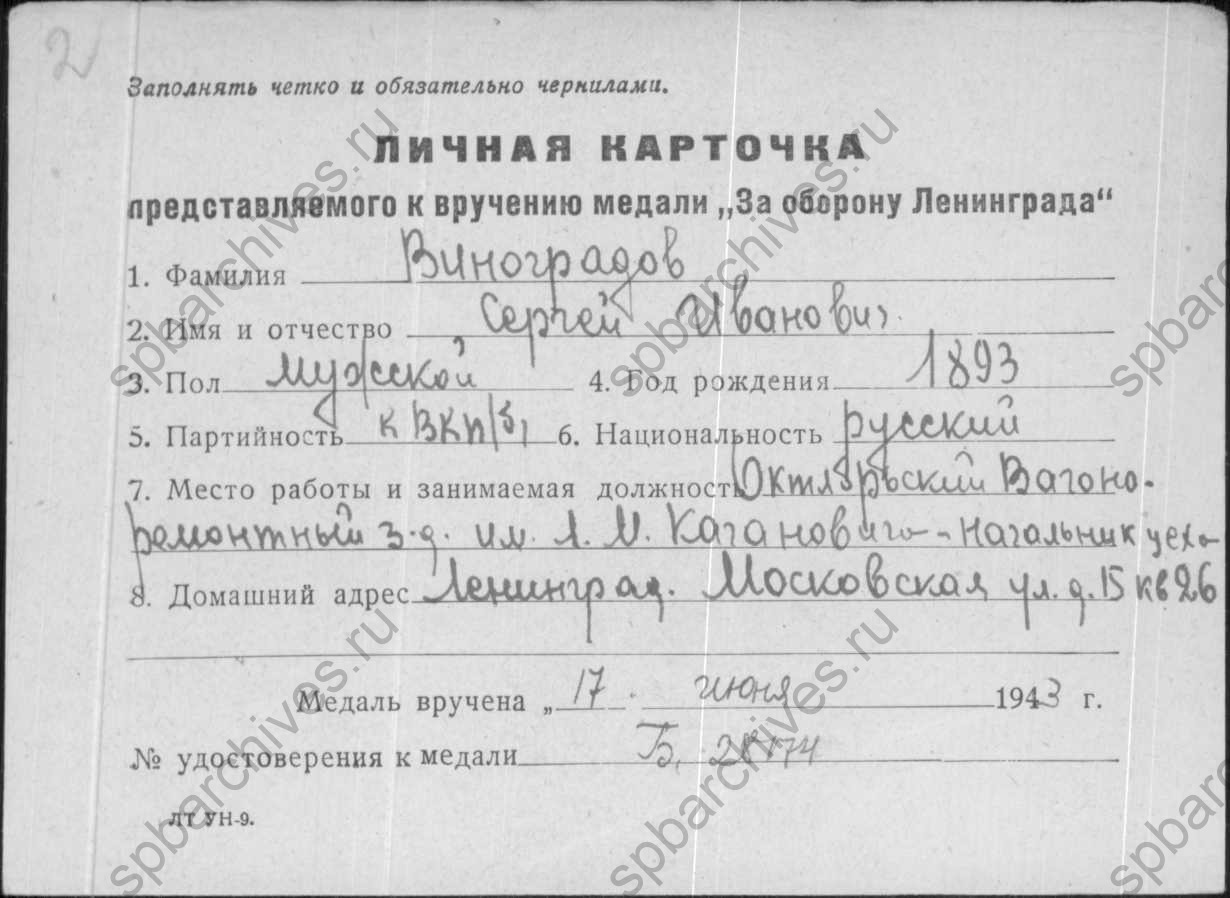 2
Заполнять четко и обязательно чернилами.
ЛИЧНАЯ КАРТОЧКА
представляемого к вручению медали „За оборону Ленинграда“
1. Фамилия Виноградов
2. Имя и отчество Сергей Иванович
3. Пол Мужской 4. Год рождения 1893
5. Партийность к ВКП(б) 6. Национальность русский
7. Место работы и занимаемая должность Октябрьский Вагоно-
ремонтный з-д. им. Л. М. Кагановича - Начальник цеха
8. Домашний адрес Ленинград. Московская ул. д. 15 кв 26
Медаль вручена „ 17 июня 1943 г.
№ удостоверения к медали Б,
ЛТ УН-9.
spbarchives.ru
spbarchives.ru
spbarchives.ru
spbarchives.ru